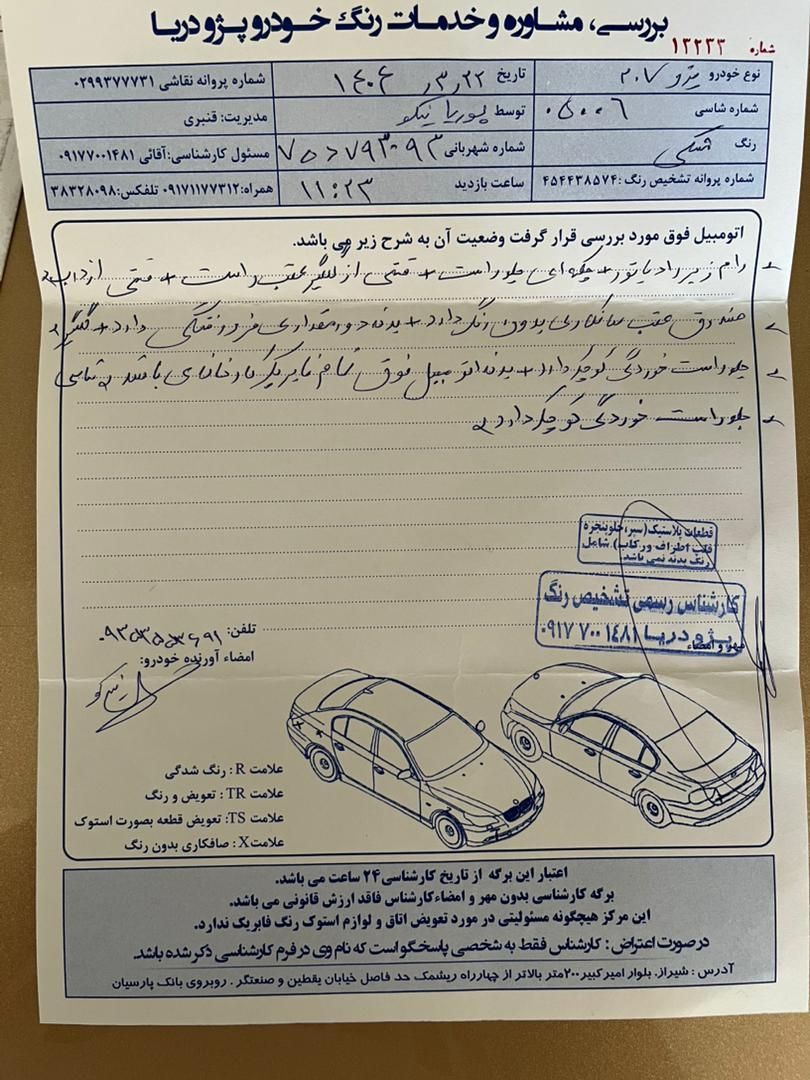 بررسی، مشاوره و خدمات رنگ خودرو پژو دریا
شماره ۱۲۲۳۳
نوع خودرو پژو ۲۰۷ تاریخ ۱۴۰۴, ۳, ۲۲ شماره پروانه نقاشی ۰۲۹۹۳۷۷۷۳۱
شماره شاسی ۰۵۰۰۶ توسط پوریا نیکو مدیریت: قنبری
رنگ مشکی شماره شهربانی مسئول کارشناسی: آقائی ۰۹۱۷۷۰۰۱۴۸۱
شماره پروانه تشخیص رنگ: ۴۵۴۴۳۸۵۷۴ ساعت بازدید ۱۱:۲۳ همراه: ۰۹۱۷۱۱۷۷۳۱۲ تلفکس: ۳۸۳۲۸۰۹۸
اتومبیل فوق مورد بررسی قرار گرفت وضعیت آن به شرح زیر می باشد.
رام زیر رادیاتور + جلو راست + قسمتی از گلگیر عقب راست + قسمتی از درب
صندوق عقب صافکاری بدون رنگ دارد + بدنه مقداری فرورفتگی دارد + گلگیر
جلو راست خوردگی کوچک دارد + بدنه اتومبیل فوق تمام فابریک کارخانه ای باشد شاسی
جلو راست خوردگی کوچک دارد
قطعات پلاستیک (سپر، جلو پنجره
قاب اطراف و رکاب) شامل
رنگ بدنه نمی باشد.
کارشناس رسمی تشخیص رنگ
پژو دریا ۰۹۱۷۷۰۰۱۴۸۱
مهر و امضاء
تلفن:
امضاء آورنده خودرو:
نیکو
علامت R: رنگ شدگی
علامت TR: تعویض و رنگ
علامت TS: تعویض قطعه بصورت استوک
علامت X: صافکاری بدون رنگ
اعتبار این برگه از تاریخ کارشناسی ۲۴ ساعت می باشد.
برگه کارشناسی بدون مهر و امضاء کارشناس فاقد ارزش قانونی می باشد.
این مرکز هیچگونه مسئولیتی در مورد تعویض اتاق و لوازم استوک رنگ فابریک ندارد.
در صورت اعتراض: کارشناس فقط به شخصی پاسخگو است که نام وی در فرم کارشناسی ذکر شده باشد.
آدرس: شیراز. بلوار امیرکبیر ۲۰۰ متر بالاتر از چهارراه ریشمک حد فاصل خیابان یقطین و صنعتگر. روبروی بانک پارسیان